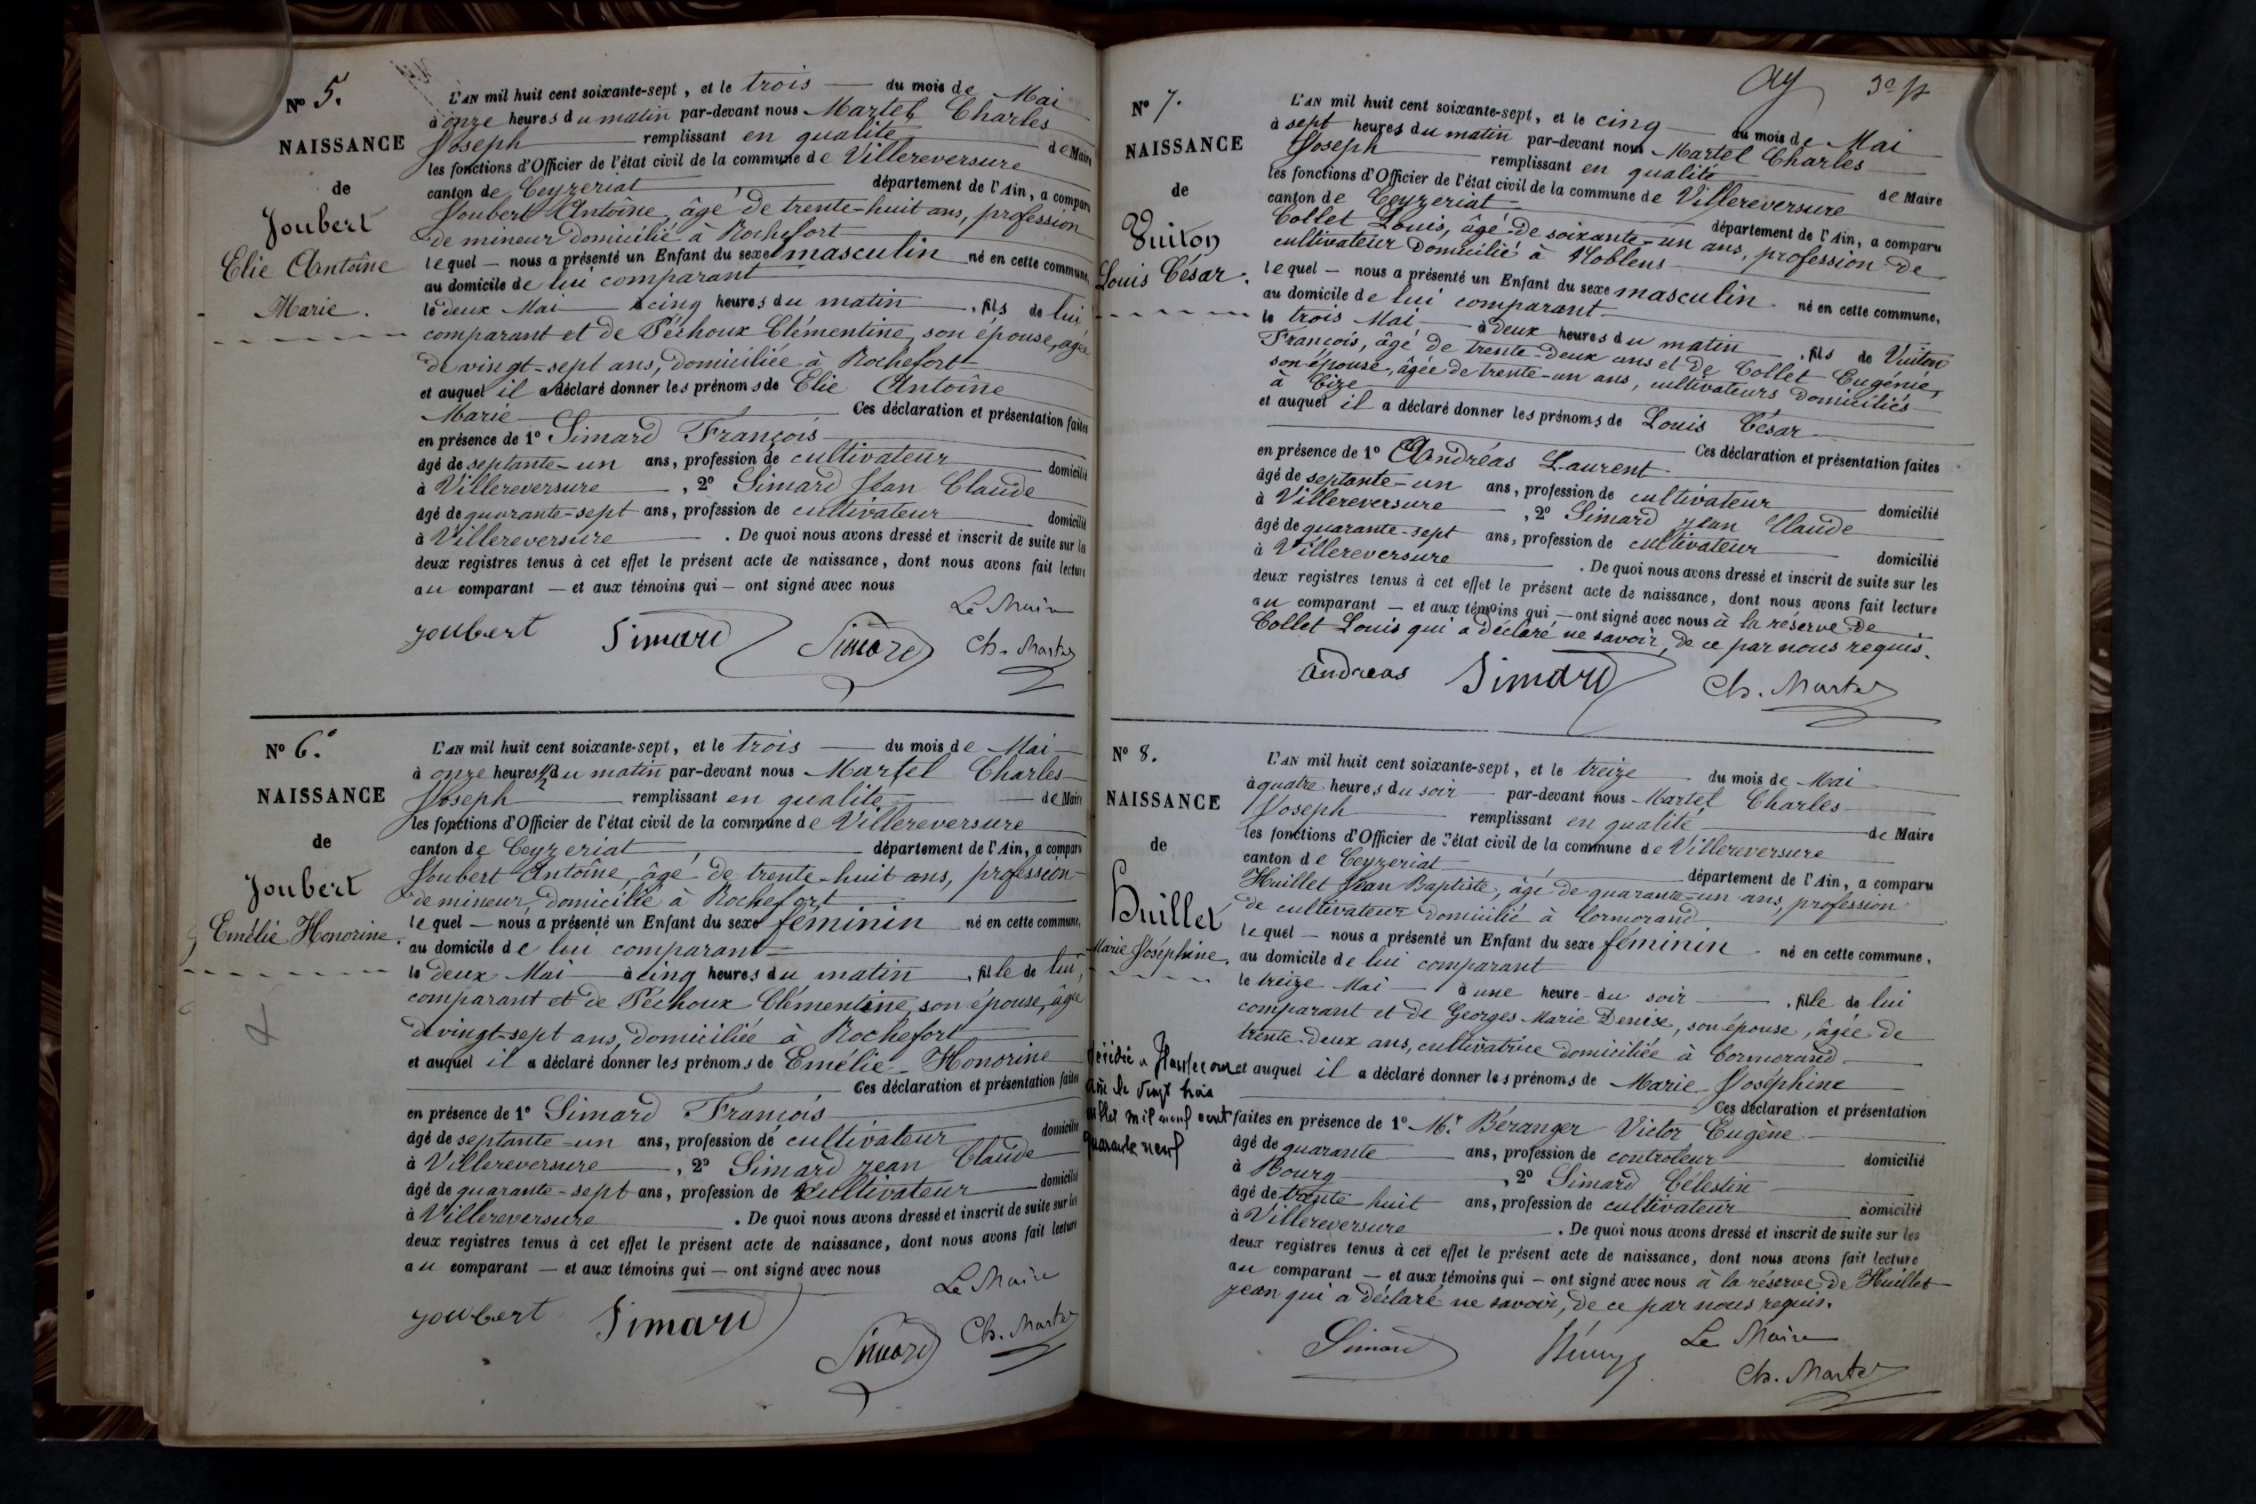 N° 5.
NAISSANCE
de
Joubert
Elie Antoîne
Marie.
L'AN mil huit cent soixante-sept, et le trois — du mois de Mai
à onze heures du matin par-devant nous Martel Charles
Joseph remplissant en qualité de Maire
les fonctions d'Officier de l'état civil de la commune de Villereversure
canton de Ceyzeriat département de l'Ain, a comparu
Joubert Antoîne, âgé de trente-huit ans, profession
de mineur domicilié à Rochefort
lequel — nous a présenté un Enfant du sexe masculin né en cette commune,
au domicile de lui comparant
le deux Mai à cinq heures du matin, fils de lui
comparant et de Péchoux Clémentine, son épouse, âgée
de vingt-sept ans, domiciliée à Rochefort
et auquel il a déclaré donner les prénoms de Elie Antoîne
Marie Ces déclaration et présentation faites
en présence de 1° Simard François
âgé de septante-un ans, profession de cultivateur domicilié
à Villereversure, 2° Simard Jean Claude
âgé de quarante-sept ans, profession de cultivateur domicilié
à Villereversure. De quoi nous avons dressé et inscrit de suite sur les
deux registres tenus à cet effet le présent acte de naissance, dont nous avons fait lecture
au comparant — et aux témoins qui — ont signé avec nous
Le Maire
Joubert Simard Simard Ch. Martel
N° 6.
NAISSANCE
de
Joubert
Emélie Honorine.
L'AN mil huit cent soixante-sept, et le trois — du mois de Mai
à onze heures 1/2 du matin par-devant nous Martel Charles
Joseph remplissant en qualité de Maire
les fonctions d'Officier de l'état civil de la commune de Villereversure
canton de Ceyzeriat département de l'Ain, a comparu
Joubert Antoîne, âgé de trente-huit ans, profession
de mineur domicilié à Rochefort
lequel — nous a présenté un Enfant du sexe féminin né en cette commune,
au domicile de lui comparant
le deux Mai à cinq heures du matin, fille de lui,
comparant et de Péchoux Clémentine, son épouse, âgée
de vingt-sept ans, domiciliée à Rochefort
et auquel il a déclaré donner les prénoms de Emélie Honorine
Ces déclaration et présentation faites
en présence de 1° Simard François
âgé de septante-un ans, profession de cultivateur domicilié
à Villereversure, 2° Simard Jean Claude
âgé de quarante-sept ans, profession de cultivateur domicilié
à Villereversure. De quoi nous avons dressé et inscrit de suite sur les
deux registres tenus à cet effet le présent acte de naissance, dont nous avons fait lecture
au comparant — et aux témoins qui — ont signé avec nous
Le Maire
Joubert Simard Simard Ch. Martel
N° 7.
NAISSANCE
de
Vuiton
Louis César.
L'AN mil huit cent soixante-sept, et le cinq du mois de Mai
à sept heures du matin par-devant nous Martel Charles
Joseph remplissant en qualité de Maire
les fonctions d'Officier de l'état civil de la commune de Villereversure
canton de Ceyzeriat département de l'Ain, a comparu
Collet Louis, âgé de soixante-un ans, profession de
cultivateur domicilié à Noblens
lequel — nous a présenté un Enfant du sexe masculin né en cette commune,
au domicile de lui comparant
le trois Mai à deux heures du matin, fils de Vuiton
François, âgé de trente-deux ans et de Collet Eugénie,
son épouse, âgée de trente-un ans, cultivateurs domiciliés
à Cize
et auquel il a déclaré donner les prénoms de Louis César
Ces déclaration et présentation faites
en présence de 1° Andréas Laurent
âgé de septante-un ans, profession de cultivateur domicilié
à Villereversure, 2° Simard Jean Claude
âgé de quarante-sept ans, profession de cultivateur domicilié
à Villereversure. De quoi nous avons dressé et inscrit de suite sur les
deux registres tenus à cet effet le présent acte de naissance, dont nous avons fait lecture
au comparant — et aux témoins qui — ont signé avec nous à la réserve de
Collet Louis qui a déclaré ne savoir, de ce par nous requis.
Andreas Simard Ch. Martel
N° 8.
NAISSANCE
de
Huillet
Marie Joséphine,
L'AN mil huit cent soixante-sept, et le treize du mois de Mai
à quatre heures du soir par-devant nous Martel Charles
Joseph remplissant en qualité de Maire
les fonctions d'Officier de l'état civil de la commune de Villereversure
canton de Ceyzeriat département de l'Ain, a comparu
Huillet Jean Baptiste, âgé de quarante-un ans, profession
de cultivateur domicilié à Cormorand
lequel — nous a présenté un Enfant du sexe féminin né en cette commune,
au domicile de lui comparant
le treize Mai à une heure du soir, fille de lui
comparant et de Georges Marie Denise, son épouse, âgée de
trente-deux ans, cultivatrice domiciliée à Cormorand
et auquel il a déclaré donner les prénoms de Marie Joséphine
Ces déclaration et présentation
faites en présence de 1° Mr Béranger Victor Eugène
âgé de quarante ans, profession de controleur domicilié
à Bourg, 2° Simard Célestin
âgé de trente huit ans, profession de cultivateur domicilié
à Villereversure. De quoi nous avons dressé et inscrit de suite sur les
deux registres tenus à cet effet le présent acte de naissance, dont nous avons fait lecture
au comparant — et aux témoins qui — ont signé avec nous à la réserve de Huillet
Jean qui a déclaré ne savoir, de ce par nous requis.
Le Maire
Simard Ch. Martel
à Hautecour
le vingt trois
mil neuf cent
quarante neuf